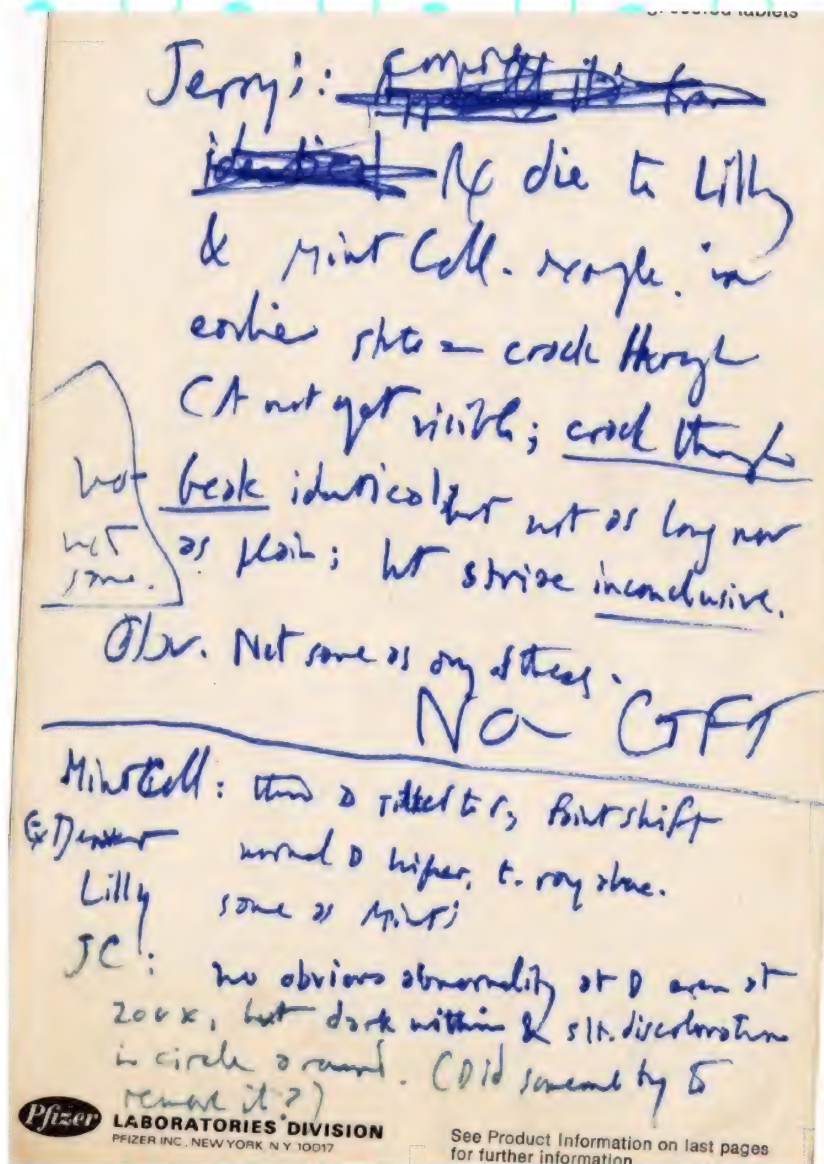 coated tablets
Jerry's:
Rx die to Lilly
& Mint Coll. in
earlier state = crack through
CA not yet visible; crack through
beak identical but not as long now
as plain; but striae inconclusive.
but
not
same.
Obv. Not same as any of these.
No GFT
Mint Coll: third D tilted to r, faint shift
Ex D
normal D higher, t. ray above.
Lilly same as Mint's
JC: no obvious abnormality at D even at
200x, but dark within & slt. discoloration
in circle around. (Did someone try to
remove it?)
Pfizer LABORATORIES DIVISION
PFIZER INC., NEW YORK, N.Y. 10017
See Product Information on last pages
for further information